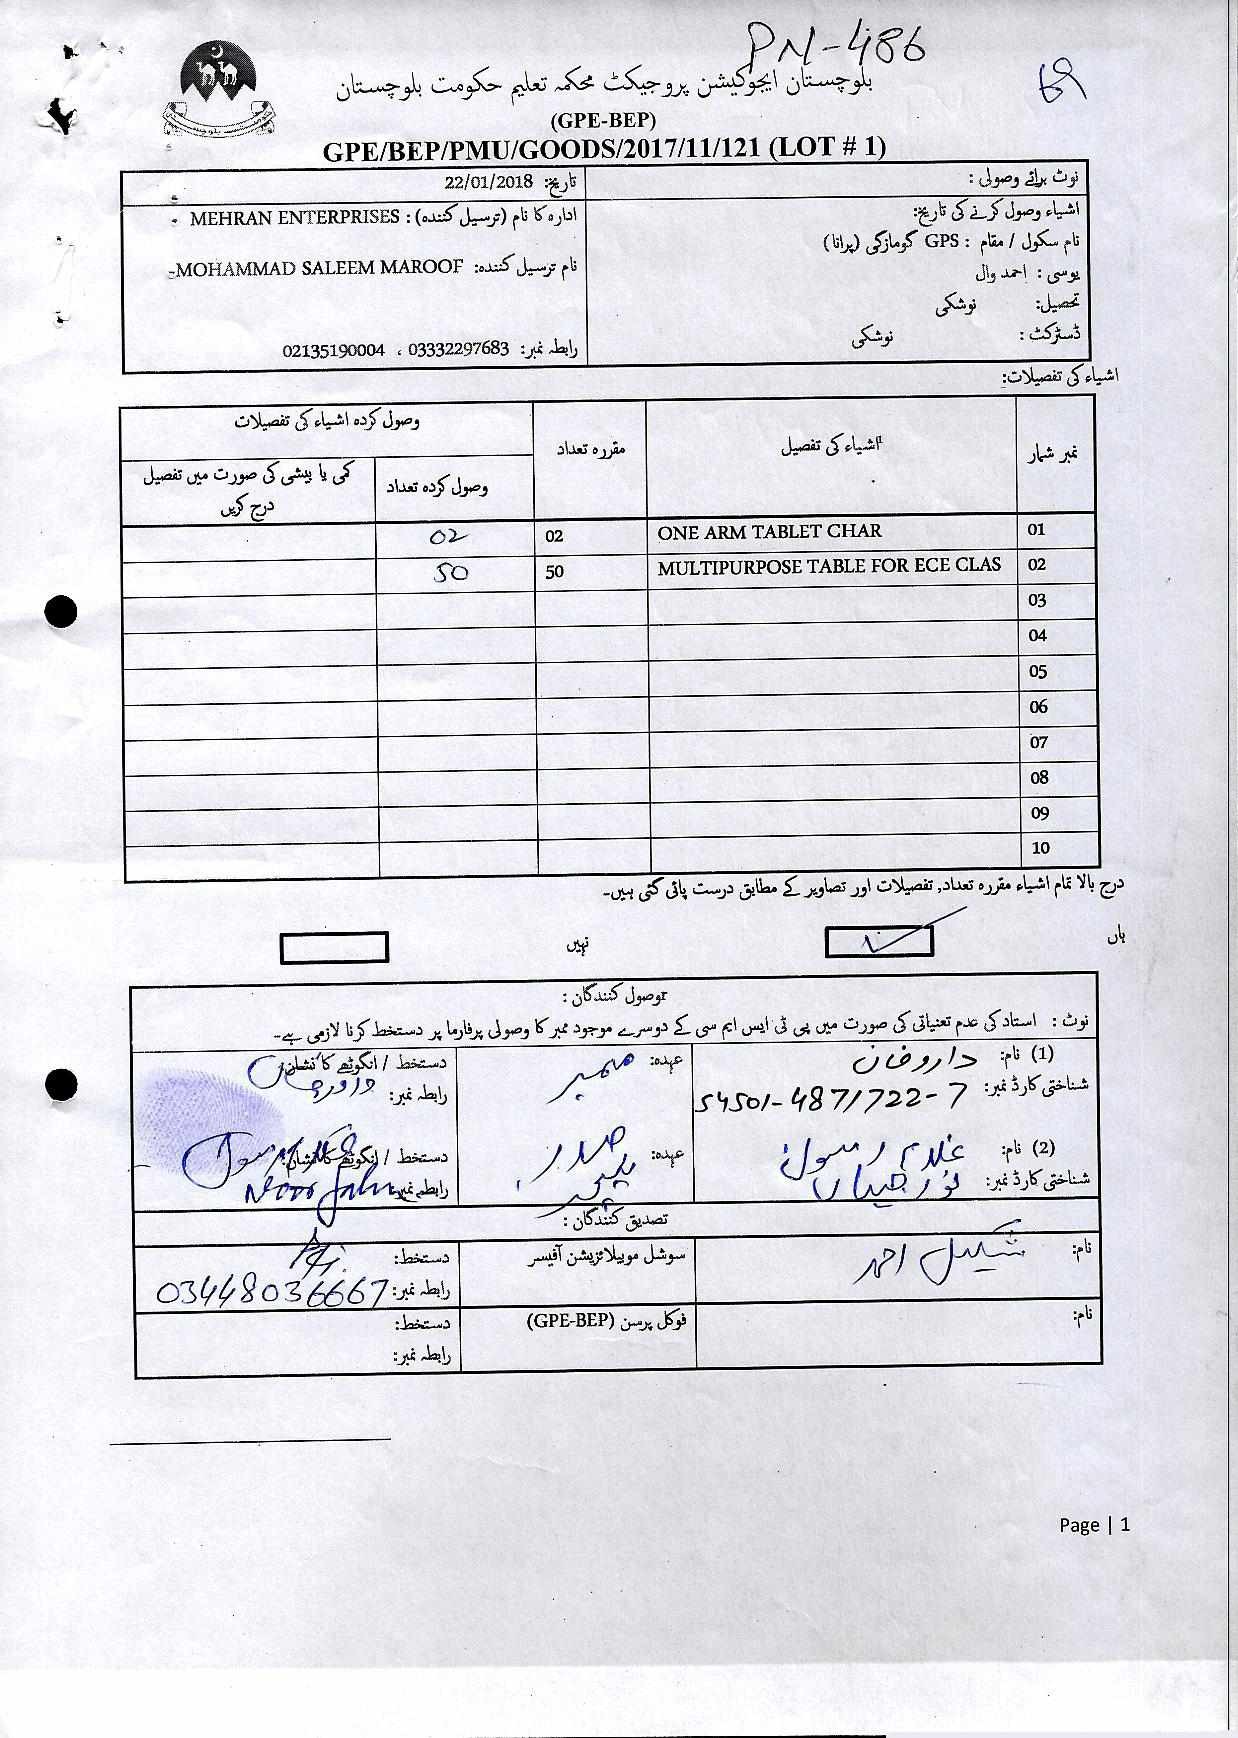 PN-486
69
بلوچستان ایجوکیشن پروجیکٹ محکمہ تعلیم حکومت بلوچستان
(GPE-BEP)
GPE/BEP/PMU/GOODS/2017/11/121 (LOT # 1)
نوٹ برائے وصولی :
تاریخ: 22/01/2018
اشیاء وصول کرنے کی تاریخ:
نام سکول / مقام : GPS گومازگی (پرانا)
یوسی : احمد وال
تحصیل: نوشکی
ڈسٹرکٹ : نوشکی
ادارہ کا نام (ترسیل کنندہ) : MEHRAN ENTERPRISES -
نام ترسیل کنندہ: MOHAMMAD SALEEM MAROOF-
رابطہ نمبر: 03332297683 ، 02135190004
اشیاء کی تفصیلات:
نمبر شمار اشیاء کی تفصیل مقررہ تعداد وصول کردہ اشیاء کی تفصیلات
وصول کردہ تعداد کمی یا بیشی کی صورت میں تفصیل درج کریں
01 ONE ARM TABLET CHAR 02 02
02 MULTIPURPOSE TABLE FOR ECE CLAS 50 50
03
04
05
06
07
08
09
10
درج بالا تمام اشیاء مقررہ تعداد, تفصیلات اور تصاویر کے مطابق درست پائی گئی ہیں۔
ہاں نہیں
وصول کنندگان :
نوٹ : استاد کی عدم تعنیاتی کی صورت میں پی ٹی ایس ایم سی کے دوسرے موجود ممبر کا وصولی پرفارما پر دستخط کرنا لازمی ہے۔
(1) نام: داروخان عہدہ: ممبر دستخط / انگوٹھے کا نشان:
شناختی کارڈ نمبر: 54501-4871722-7 رابطہ نمبر:
(2) نام: غلام رسول عہدہ: صدر دستخط / انگوٹھے کا نشان:
شناختی کارڈ نمبر: نور جہاں رابطہ نمبر: Noor Jahn
تصدیق کنندگان :
نام: شکیل احمد سوشل موبیلائزیشن آفیسر دستخط:
رابطہ نمبر: 03448036667
نام: فوکل پرسن (GPE-BEP) دستخط:
رابطہ نمبر:
Page | 1